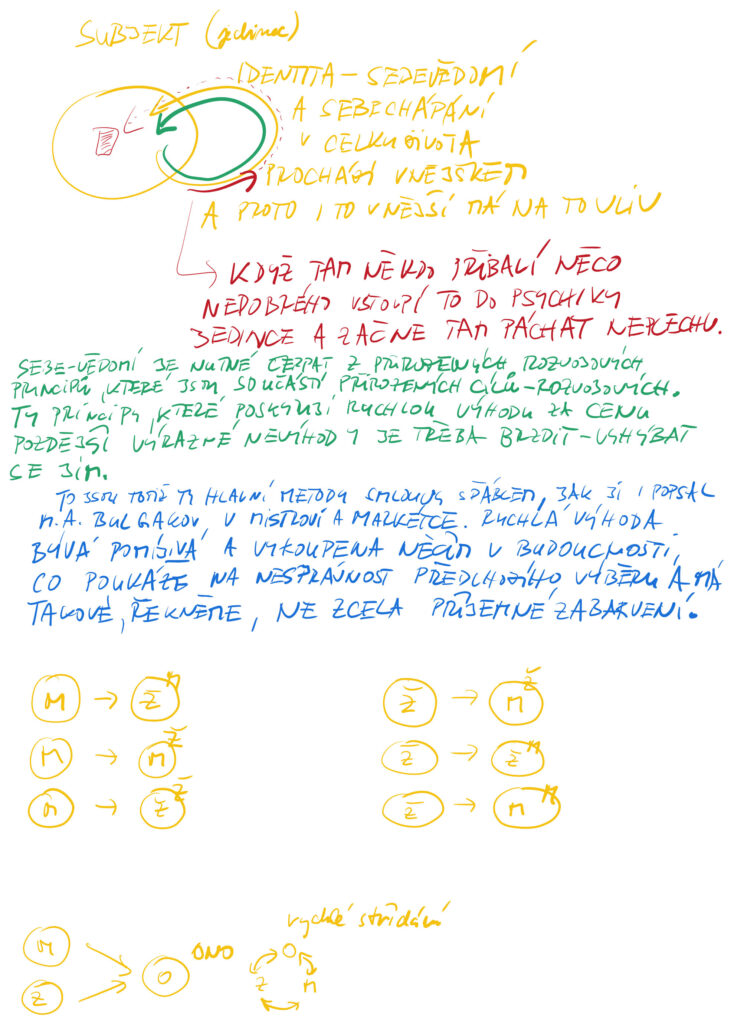 SUBJEKT (jedinec)
IDENTITA – SEBEVĚDOMÍ
A SEBECHÁPÁNÍ
V CELKU ŽIVOTA
PROCHÁZÍ VNĚJŠKEM
A PROTO I TO VNĚJŠÍ MÁ NA TO VLIV
KDYŽ TAM NĚKDO PŘIBALÍ NĚCO
NEDOBRÉHO VSTOUPÍ TO DO PSYCHIKY
JEDINCE A ZAČNE TAM PÁCHAT NEPLECHU.
SEBE-VĚDOMÍ JE NUTNÉ ČERPAT Z PŘIROZENÝCH ROZVOJOVÝCH
PRINCIPŮ, KTERÉ JSOU SOUČÁSTÍ PŘIROZENÝCH CÍLŮ-ROZVOJOVÝCH.
TY PRINCIPY, KTERÉ POSKYTUJÍ RYCHLOU VÝHODU ZA CENU
POZDĚJŠÍ VÝRAZNÉ NEVÝHODY JE TŘEBA BRZDIT-VYHÝBAT
SE JIM.
TO JSOU TOTIŽ TY HLAVNÍ METODY SMLOUVY S ĎÁBLEM, JAK JI I POPSAL
M.A. BULGAKOV, V MISTROVI A MARKÉTCE. RYCHLÁ VÝHODA
BÝVÁ POMÍJIVÁ A VYKOUPENA NĚČÍM V BUDOUCNOSTI,
CO POUKÁŽE NA NESPRÁVNOST PŘEDCHOZÍHO VÝBĚRU A MÁ
TAKOVÉ, ŘEKNĚME, NE ZCELA PŘÍJEMNÉ ZABARVENÍ.
M → Ž M
Ž → M Ž
M → M Ž
Ž → Ž M
M → Ž Ž
Ž → M M
rychlé střídání
M
Ž
O
ONO
O
Ž
M